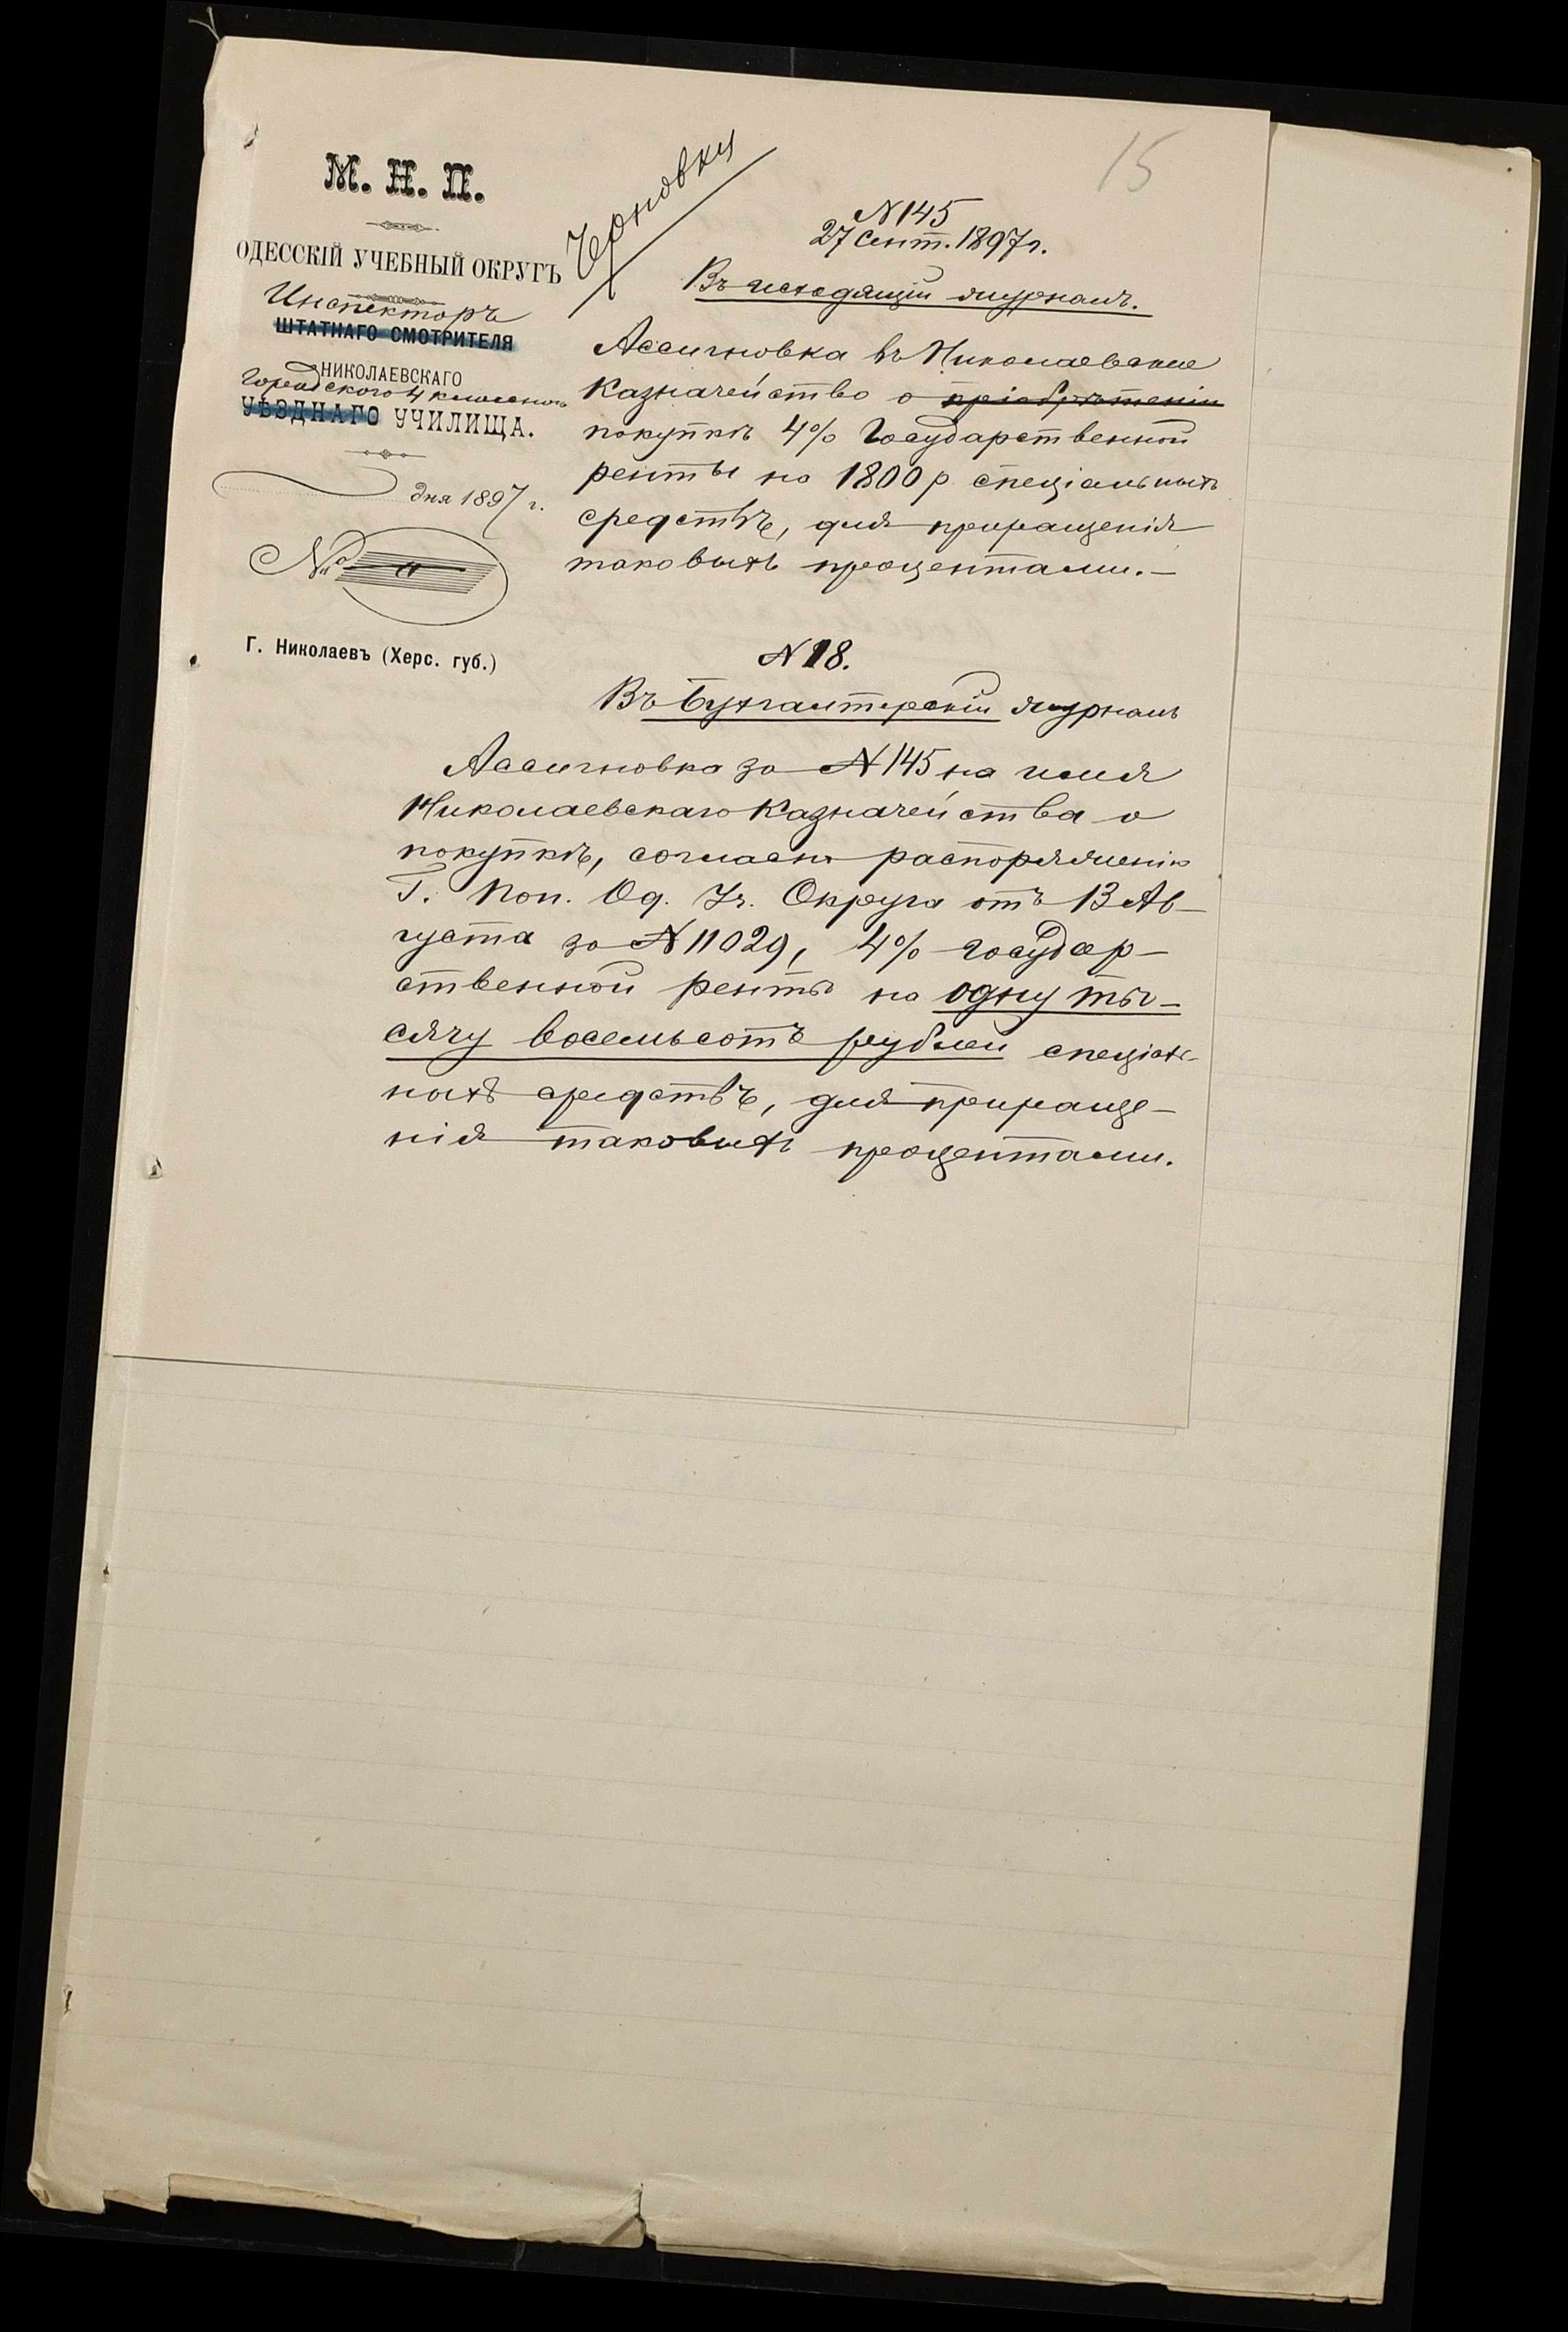 15
М. Н. П.
ОДЕССКІЙ УЧЕБНЫЙ ОКРУГЪ
Инспекторъ
ШТАТНАГО СМОТРИТЕЛЯ
НИКОЛАЕВСКАГО
Городского 4 классного
УѢЗДНАГО УЧИЛИЩА.
дня 1897 г.
№
Г. Николаевъ (Херс. губ.)
Черновки
N 145
27 Сент. 1897 г.
Въ исходящій журналъ.
Ассигновка въ Николаевское
Казначейство о пріобрѣтеніи
покупкѣ 4% Государственной
ренты на 1800 р. спеціальныхъ
средствъ, для приращенія
таковыхъ процентами.—
N 18.
Въ Бухгалтерскій журналъ
Ассигновка за N 145 на имя
Николаевскаго Казначейства о
покупкѣ, согласно распоряженію
Г. Поп. Од. Уч. Округа отъ 13 Ав-
густа за N 11029, 4% государ-
ственной ренты на одну ты-
сячу восемьсотъ рублей спеціаль-
ныхъ средствъ, для прираще-
нія таковыхъ процентами.